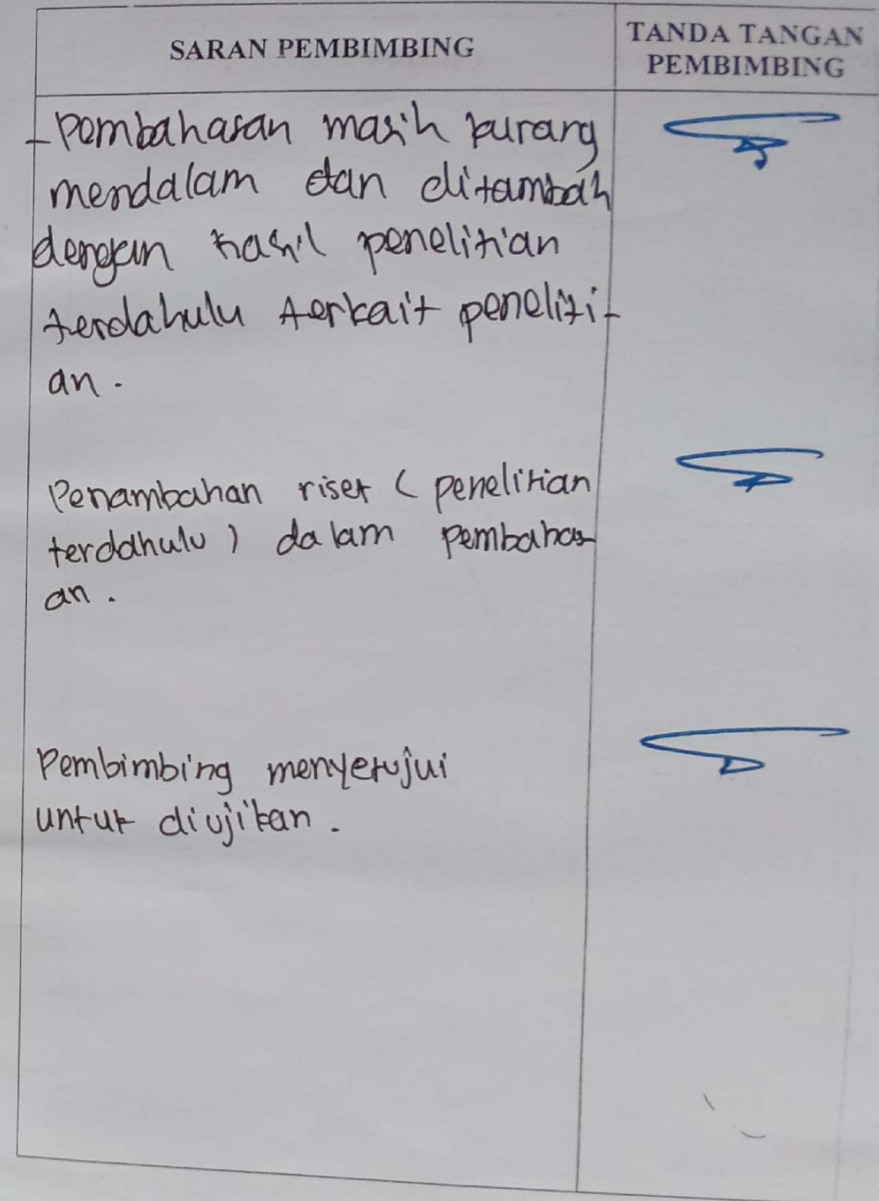 SARAN PEMBIMBING
TANDA TANGAN
PEMBIMBING
- Pembahasan masih kurang
mendalam dan ditambah
dengan hasil penelitian
terdahulu terkait peneliti-
an.
Penambahan riset (penelitian
terdahulu) dalam pembahas-
an.
Pembimbing menyetujui
untuk diujikan.